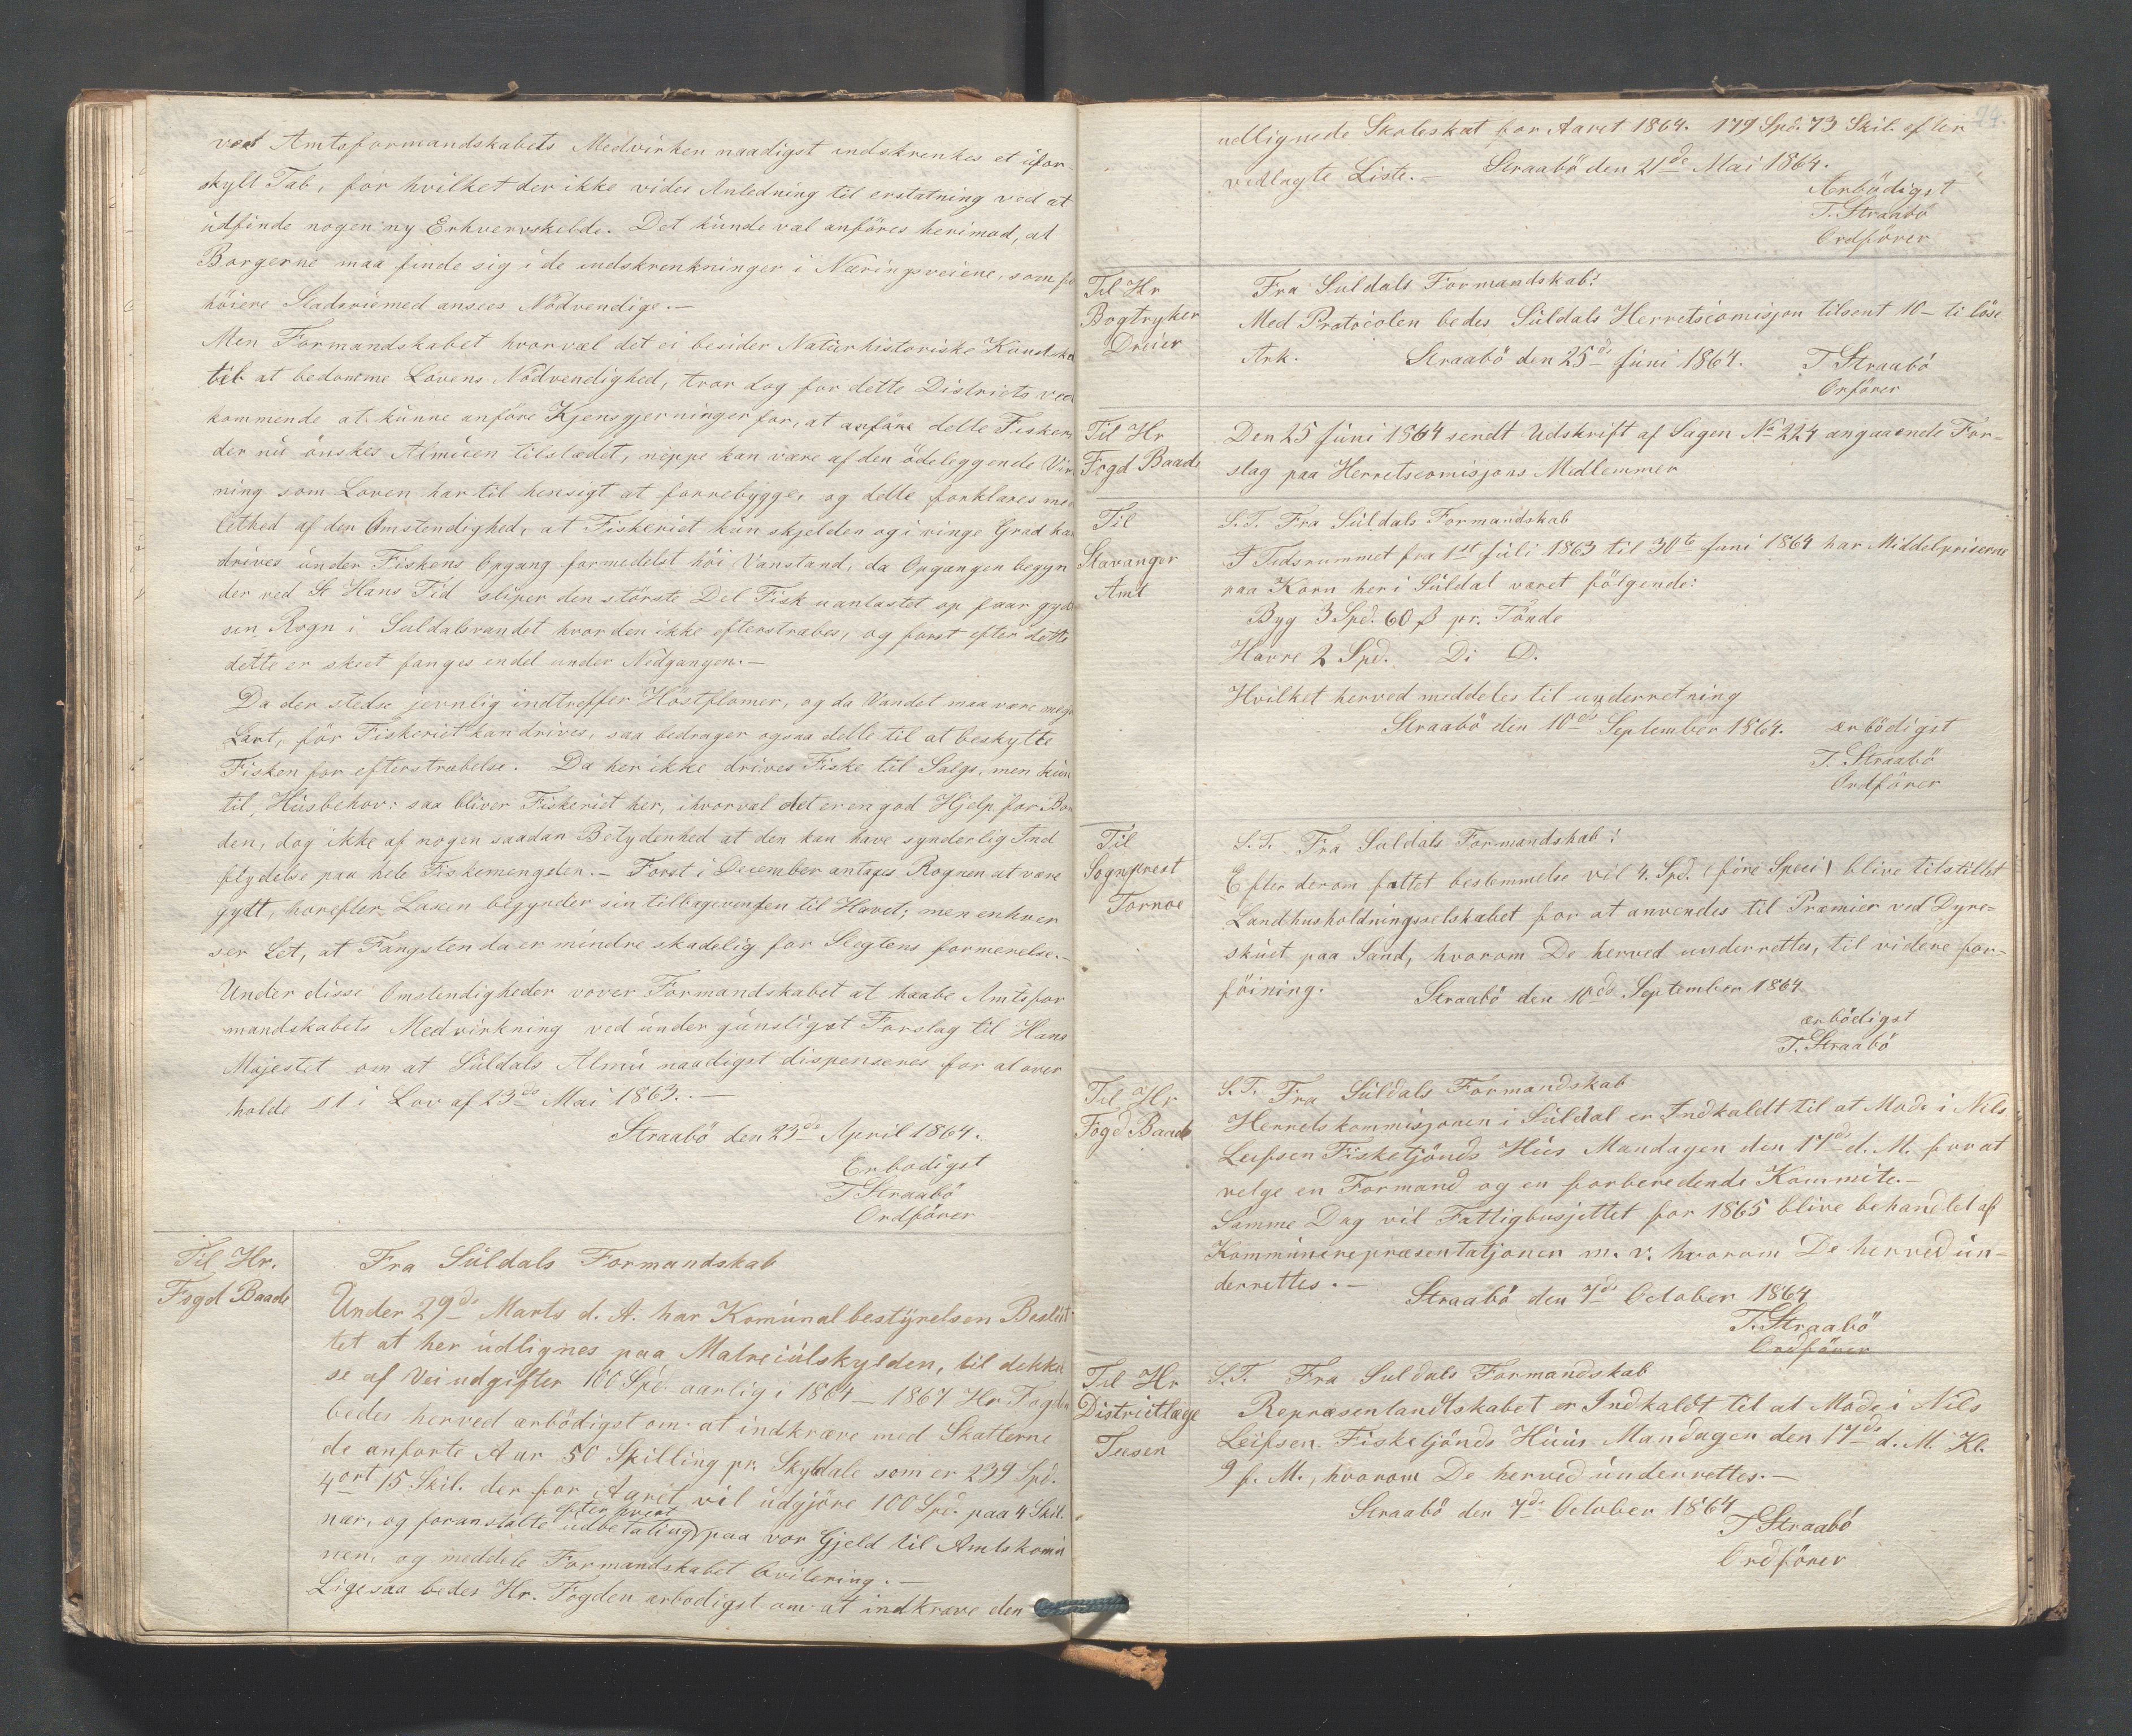 ved Amtsformandskabets Medvirken naadigst indskrenkes et ufor
skylt Tab, for hvilket der ikke vides Anledning til erstatning ved at
udfinde nogen ny Erhvervskilde. Det kunde væl anföres herimod, at
Borgerne maa finde sig i de indskrenkninger i Næringsveiene, som fra
höiere Stadsöiemed ansees Nödvendige.—
Men Formandskabet hvorvæl det ei besider Naturhistoriske Kundska
til at bedömme Lovens Nödvendighed, tror dog for dette Districts ved
kommende at kunne anföre Kjensgjerninger for, at anföre dette Fiskeri
der nu önskes Almuen tilstædet, neppe kan være af den ödeleggende Virk
ning som Loven har til hensigt at forrebygge, og dette forklares med
lethed af den Omstendighed, at Fiskeriet kun skjelden og i ringe Grad kan
drives under Fiskens Opgang formedelst höi Vanstand, da Opgangen begyn
der ved St Hans Tid sliper den störste Del Fisk uantastet op faar gydt
sin Rogn i Suldalsvandet hvor den ikke efterstræbes, og først efter dette
dette er skeet fanges endel under Nedgangen.—
Da der stedse jevnlig indtreffer Höstflomer, og da Vandet maa være meget
Lavt, för Fiskeriet kan drives, saa bedrager ogsaa dette til at beskytte
Fisken for efterstræbelse. Da her ikke drives Fiske til Salgs, men kun
til Husbehov: saa bliver Fiskeriet her, ihvorvæl det er en god Hjelp for Bon
den, dog ikke af nogen saadan Betydenhed at den kan have synderlig Ind
flydelse paa hele Fiskemengden.— Först i December antages Rognen at være
gydt, hvorefter Laxen begynder sin tilbagevenden til Havet; men enhver
ser Let, at Fangsten da er mindre skadelig for Slegtens formerelse.—
Under disse Omstendigheder vover Formandskabet at haabe Amtsfor
mandskabets Medvirkning ved under gunstigst Forslag til Hans
Majestet om at Suldals Almu naadigst dispenseres for at over
holde §1 i Lov af 23de Mai 1863.—
Straabö den 23de April 1864.
Erbödigst
T Straabö
Ordförer
Til Hr.
Fogd Baade
Fra Suldals Formandskab
Under 29de Marts d. A. har Komunalbestyrelsen Beslut
tet at her udlignes paa Matreiulskylden, til dekkel
se af Veiudgifter 100 Spd. aarlig i 1864—1867 Hr Fogden
bedes herved ærbödigst om at indkræve med Skatterne
de anförte Aar 50 Skilling pr. Skyldale som er 239 Spd.
4 ort 15 Skil. der for Aaret vil udgjöre 100 Spd. paa 4 Skil.
nær, og foranstalte efter hvert udbetaling paa vor Gjeld til Amtskomu
nen, og meddele Formandskabet Qvitering.—
Ligesaa bedes Hr. Fogden ærbödigst om at indkræve den
94.
udlignede Skoleskat for Aaret 1864. 179 Spd. 73 Skil. efter
vedlagte Liste.— Straabö den 21de Mai 1864.
Ærbödigst
T. Straabö
Ordförer
Til Hr
Bogtryker
Dreier
Fra Suldals Formandskab!
Med Protocolen bedes Suldals Herretscomisjon tilsent 10— ti löse
Ark. Straabö den 25de Juni 1864. T Straabö
Orförer
Til Hr
Fogd Baade
Den 25 Juni 1864 sendt Udskrift af Sagen No 224 angaaende For-
slag paa Herretscomisjons Medlemmer
Til
Stavanger
Amt
S.T. Fra Suldals Formandskab
I Tidsrummet fra 1st Juli 1863 til 30te Juni 1864 har Middelpriserne
paa Korn her i Suldal været fölgende:
Byg 3 Spd. 60 ß pr. Tönde
Havre 2 Spd. Di D.
Hvilket herved meddeles til underretning
Straabö den 10de September 1864. ærbödigst
T. Straabö
Ordförer
Til
Sognprest
Tornoe
S.T. Fra Suldals Formandskab!
Efter derom fattet bestemmelse vil 4. Spd. (fire Speci) blive tilstillet
Landhusholdningsselskabet for at anvendes til Præmier ved Dyre-
skuet paa Sand, hvorom De herved underrettes, til videre for-
föining. Straabö den 10de September 1864
ærbödigst
T. Straabö
Til Hr
Fogd Baade
S.T. Fra Suldals Formandskab
Herretskommisjonen i Suldal er Indkaldt til at Möde i Nils
Leifsen Fisketjönds Hus Mandagen den 17de d. M. for at
velge en Formand og en forberedende Kommite.—
Samme Dag vil Fattigbusjettet for 1865 blive behandlet af
Kommunerepræsentatjonen m. v. hvorom De herved un-
derrettes.— Straabö den 7de October 1864
T. Straabö
Ordförer
Til Hr
Districtlæge
Tiesen
S.T. Fra Suldals Formandskab
Repræsentandtskabet er Indkaldt til at Möde i Nils
Leifsen Fisketjönds Huus Mandagen den 17de d. M. Kl.
9 f. M., hvorom De herved underrettes.—
Straabö den 7de October 1864
T Straabö
Ordförer